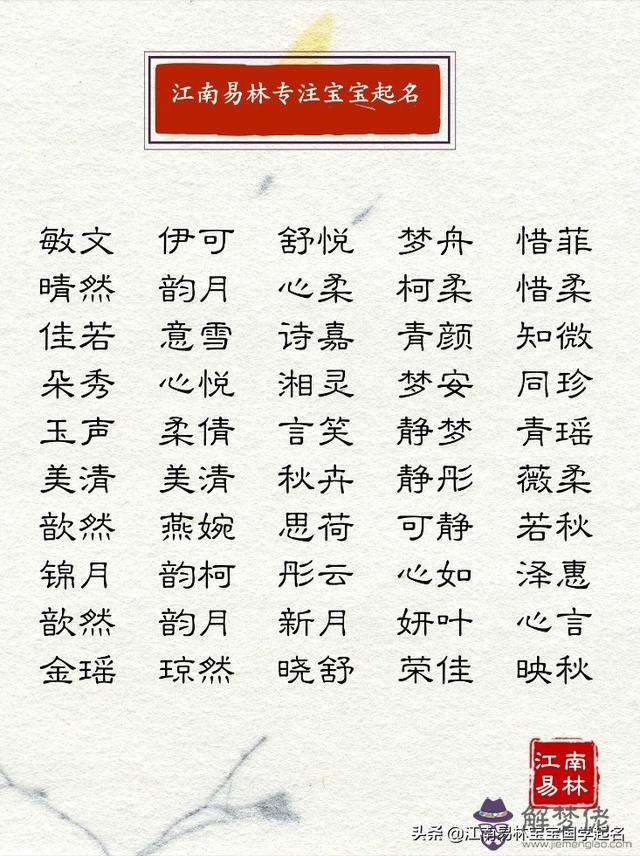 江南易林专注宝宝起名
敏文 伊可 舒悦 梦舟 惜菲
晴然 韵月 心柔 柯柔 惜柔
佳若 意雪 诗嘉 青颜 知微
朵秀 心悦 湘灵 梦安 同珍
玉声 柔倩 言笑 静梦 青瑶
美清 美清 秋卉 静彤 薇柔
歆然 燕婉 思荷 可静 若秋
锦月 韵柯 彤云 心如 泽惠
歆然 韵月 新月 妍叶 心言
金瑶 琼然 晓舒 荣佳 映秋
江南
易林
解梦佬
www.jiemenglao.com
头条 @江南易林宝宝国学起名